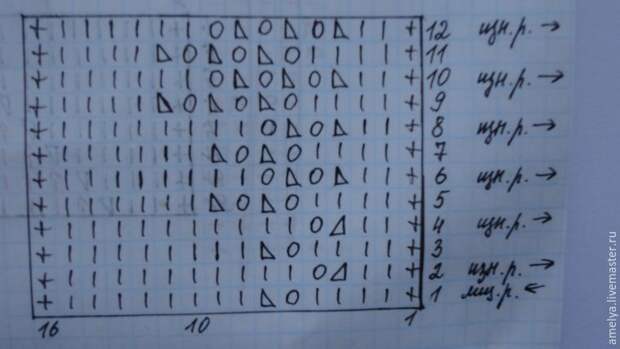 + | | | | | | O ◺ O ◺ O ◺ | | + 12 изн.р. →
+ | | | | ◺ O ◺ O ◺ O | | | | + 11
+ | | | | | | O ◺ O ◺ O ◺ | | + 10 изн.р. →
+ | | | | ◺ O ◺ O ◺ O | | | | + 9
+ | | | | | | | | O ◺ O ◺ | | + 8 изн.р. →
+ | | | | | | ◺ O ◺ O | | | | + 7
+ | | | | | | | | O ◺ O ◺ | | + 6 изн.р. →
+ | | | | | | ◺ O ◺ O | | | | + 5
+ | | | | | | | | | | O ◿ | | + 4 изн.р. →
+ | | | | | | | | ◺ O | | | | + 3
+ | | | | | | | | | | O ◿ | | + 2 изн.р. →
+ | | | | | | | | ◺ O | | | | + 1 лиц.р. ←
16 10 1
amelya.livemaster.ru